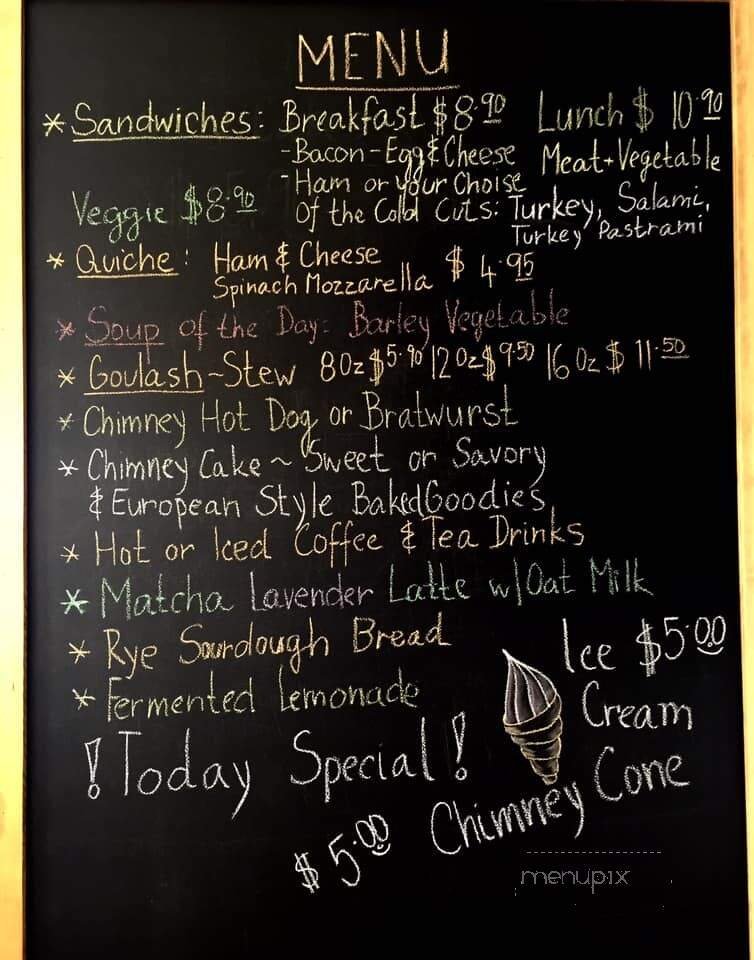 MENU
* Sandwiches: Breakfast $8.90 Lunch $ 10.90
-Bacon-Egg & Cheese Meat+Vegetable
-Ham or your Choise
Veggie $8.90 Of the Cold Cuts: Turkey, Salami,
Turkey Pastrami
* Quiche: Ham & Cheese
Spinach Mozzarella $ 4.95
* Soup of the Day: Barley Vegetable
* Goulash~Stew 8oz $5.90 12 Oz $9.50 16 Oz $ 11.50
* Chimney Hot Dog or Bratwurst
* Chimney Cake ~ Sweet or Savory
& European Style Baked Goodies
* Hot or Iced Coffee & Tea Drinks
* Matcha Lavender Latte w/Oat Milk
* Rye Sourdough Bread
* Fermented Lemonade
Ice $5.00
Cream
! Today Special !
$5.00 Chimney Cone
menupix